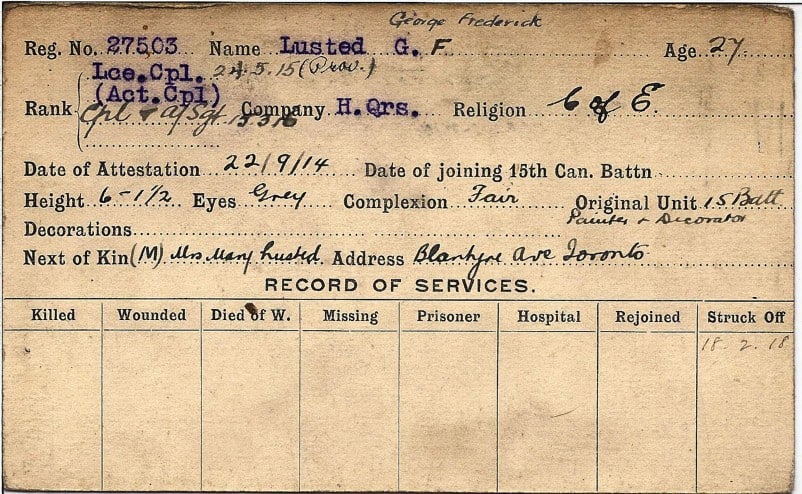 George Frederick
Reg. No. 27503 Name Lusted G. F. Age 27
Lce.Cpl. 24.5.15 (Prov.)
(Act.Cpl)
Rank Cpl & a/Sgt 15316 Company H.Qrs. Religion C of E.
Date of Attestation 22/9/14 Date of joining 15th Can. Battn
Height 6-1½ Eyes Grey Complexion Fair Original Unit 15 Batt
Painter & Decorator
Decorations
Next of Kin (M) Mrs Mary Lusted. Address Blantyre Ave Toronto
RECORD OF SERVICES.
Killed Wounded Died of W. Missing Prisoner Hospital Rejoined Struck Off
18.2.18